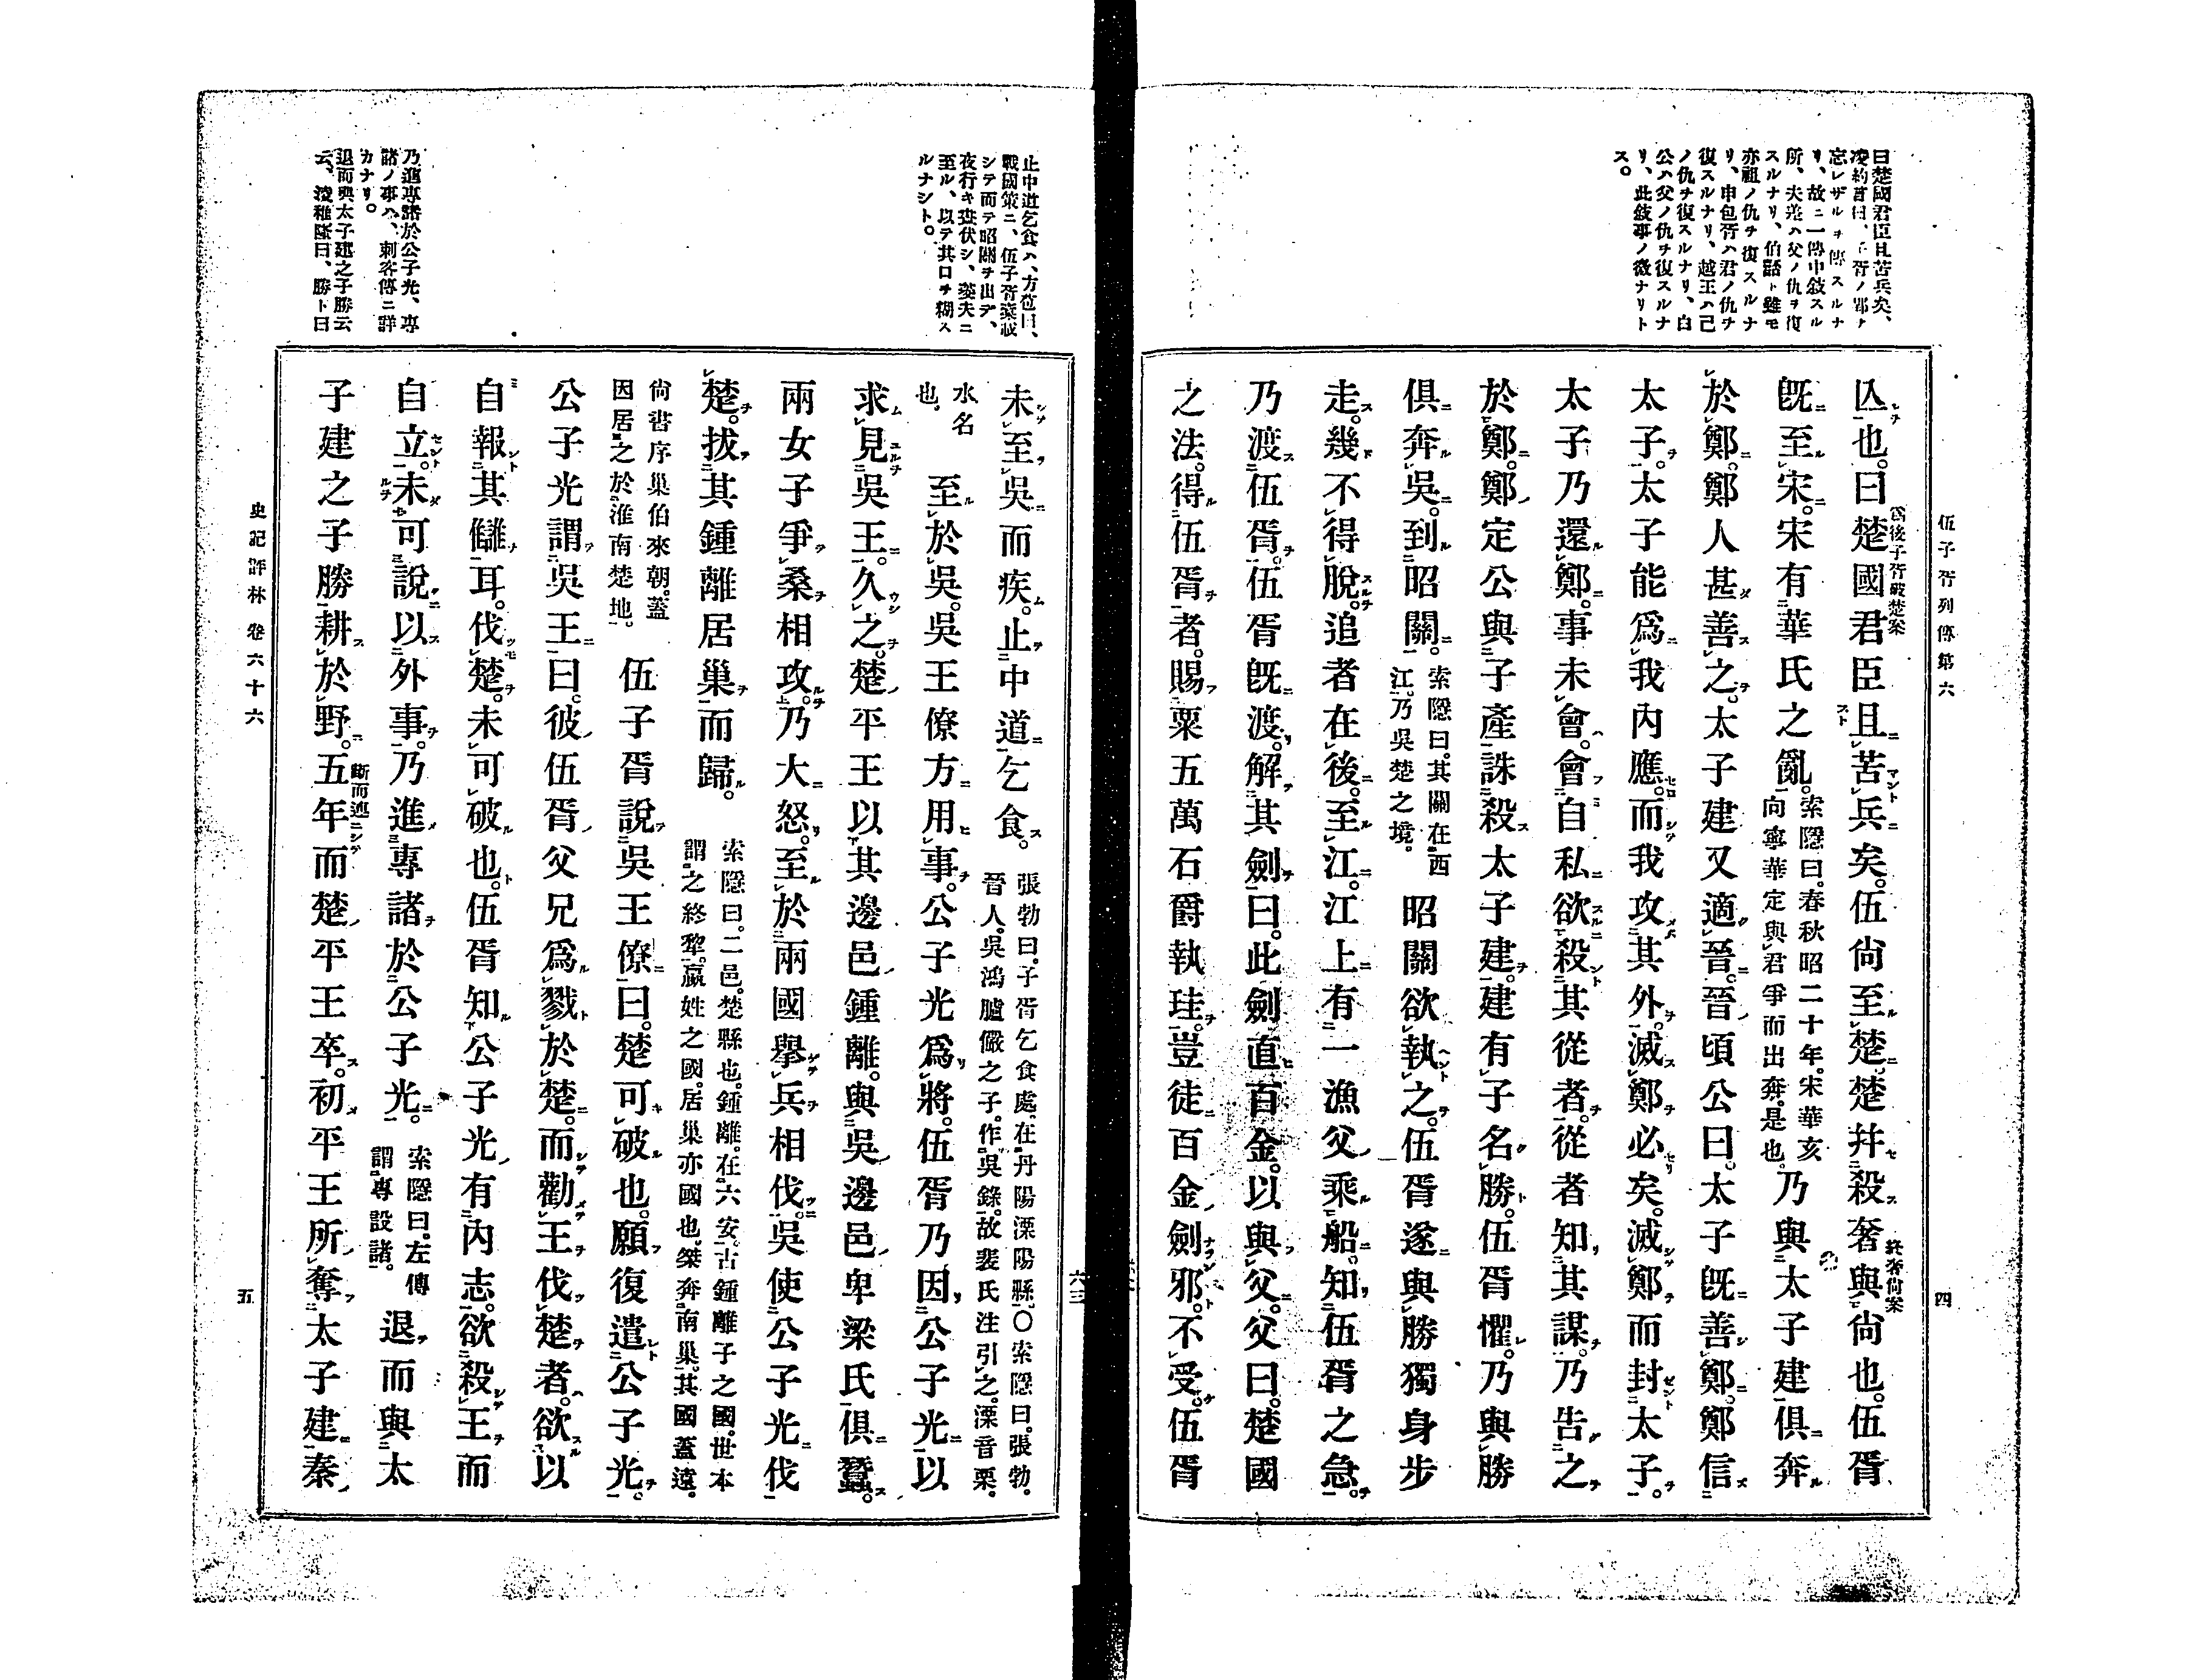 伍子胥列傳第六
四
曰楚國君臣且苦兵矣、
忘レザルヲ傳スルナ
リ、故ニ一傳中敍スル
所、夫差ハ父ノ仇ヲ復
スルナリ、伯嚭ト雖モ
亦祖ノ仇ヲ復スルナ
リ、申包胥ハ君ノ仇ヲ
復スルナリ、越王ハ己
ノ仇ヲ復スルナリ、白
公ハ父ノ仇ヲ復スルナ
リ、此敍事ノ微ナリト
ス。
亾也。曰楚國君臣且苦兵矣。伍尙至楚。楚幷殺奢與尙也。伍胥
爲後子胥破楚案
終奢尙案
旣至宋。宋有華氏之亂。索隱曰。春秋昭二十年。宋華亥向寧華定與君爭而出奔。是也。乃與太子建俱奔
於鄭。鄭人甚善之。太子建又適晉。晉頃公曰。太子旣善鄭。鄭信
太子。太子能爲我內應。而我攻其外。滅鄭必矣。滅鄭而封太子。
太子乃還鄭。事未會。會自私欲殺其從者。從者知其謀。乃吿之
於鄭。鄭定公與子產誅殺太子建。建有子名勝。伍胥懼。乃與勝
俱奔吳。到昭關。索隱曰。其關在西江。乃吳楚之境。昭關欲執之。伍胥遂與勝獨身步
走。幾不得脫。追者在後。至江。江上有一漁父乘船。知伍胥之急。
乃渡伍胥。伍胥旣渡。解其劍曰。此劍直百金。以與父。父曰。楚國
之法。得伍胥者。賜粟五萬石爵執珪。豈徒百金劍邪。不受。伍胥
止中道乞食ハ、方苞曰、
戰國策ニ、伍子胥槖載
シテ而テ昭關ヲ出デ、
夜行キ晝伏シ、蔆夫ニ
至ル、以テ其口ヲ糊ス
ルナシト。
乃進專諸於公子光、專
諸ノ事ハ、刺客傳ニ詳
カナリ。
退而與太子建之子勝云
云、凌稚隆曰、勝ト曰
未至吳而疾。止中道乞食。張勃曰。子胥乞食處。在丹陽溧陽縣。〇索隱曰。張勃。晉人。吳鴻臚儼之子。作吳錄。故裴氏注引之。溧音栗。
水名也。至於吳。吳王僚方用事。公子光爲將。伍胥乃因公子光以
求見吳王。久之。楚平王以其邊邑鍾離。與吳邊邑卑梁氏俱蠶。
兩女子爭桑相攻。乃大怒。至於兩國擧兵相伐。吳使公子光伐
楚。拔其鍾離居巢而歸。索隱曰。二邑。楚縣也。鍾離。在六安。古鍾離子之國。世本謂之終犂。嬴姓之國。居巢亦國也。桀奔南巢。其國蓋遠。
尙書序巢伯來朝。蓋因居之於淮南楚地。伍子胥說吳王僚曰。楚可破也。願復遣公子光。
公子光謂吳王曰。彼伍胥父兄爲戮於楚。而勸王伐楚者。欲以
自報其讎耳。伐楚。未可破也。伍胥知公子光有內志。欲殺王而
自立。未可說以外事。乃進專諸於公子光。索隱曰。左傳謂專設諸。退而與太
子建之子勝耕於野。五年而楚平王卒。初平王所奪太子建秦
斷而連ニシテ
史記評林 卷六十六
五